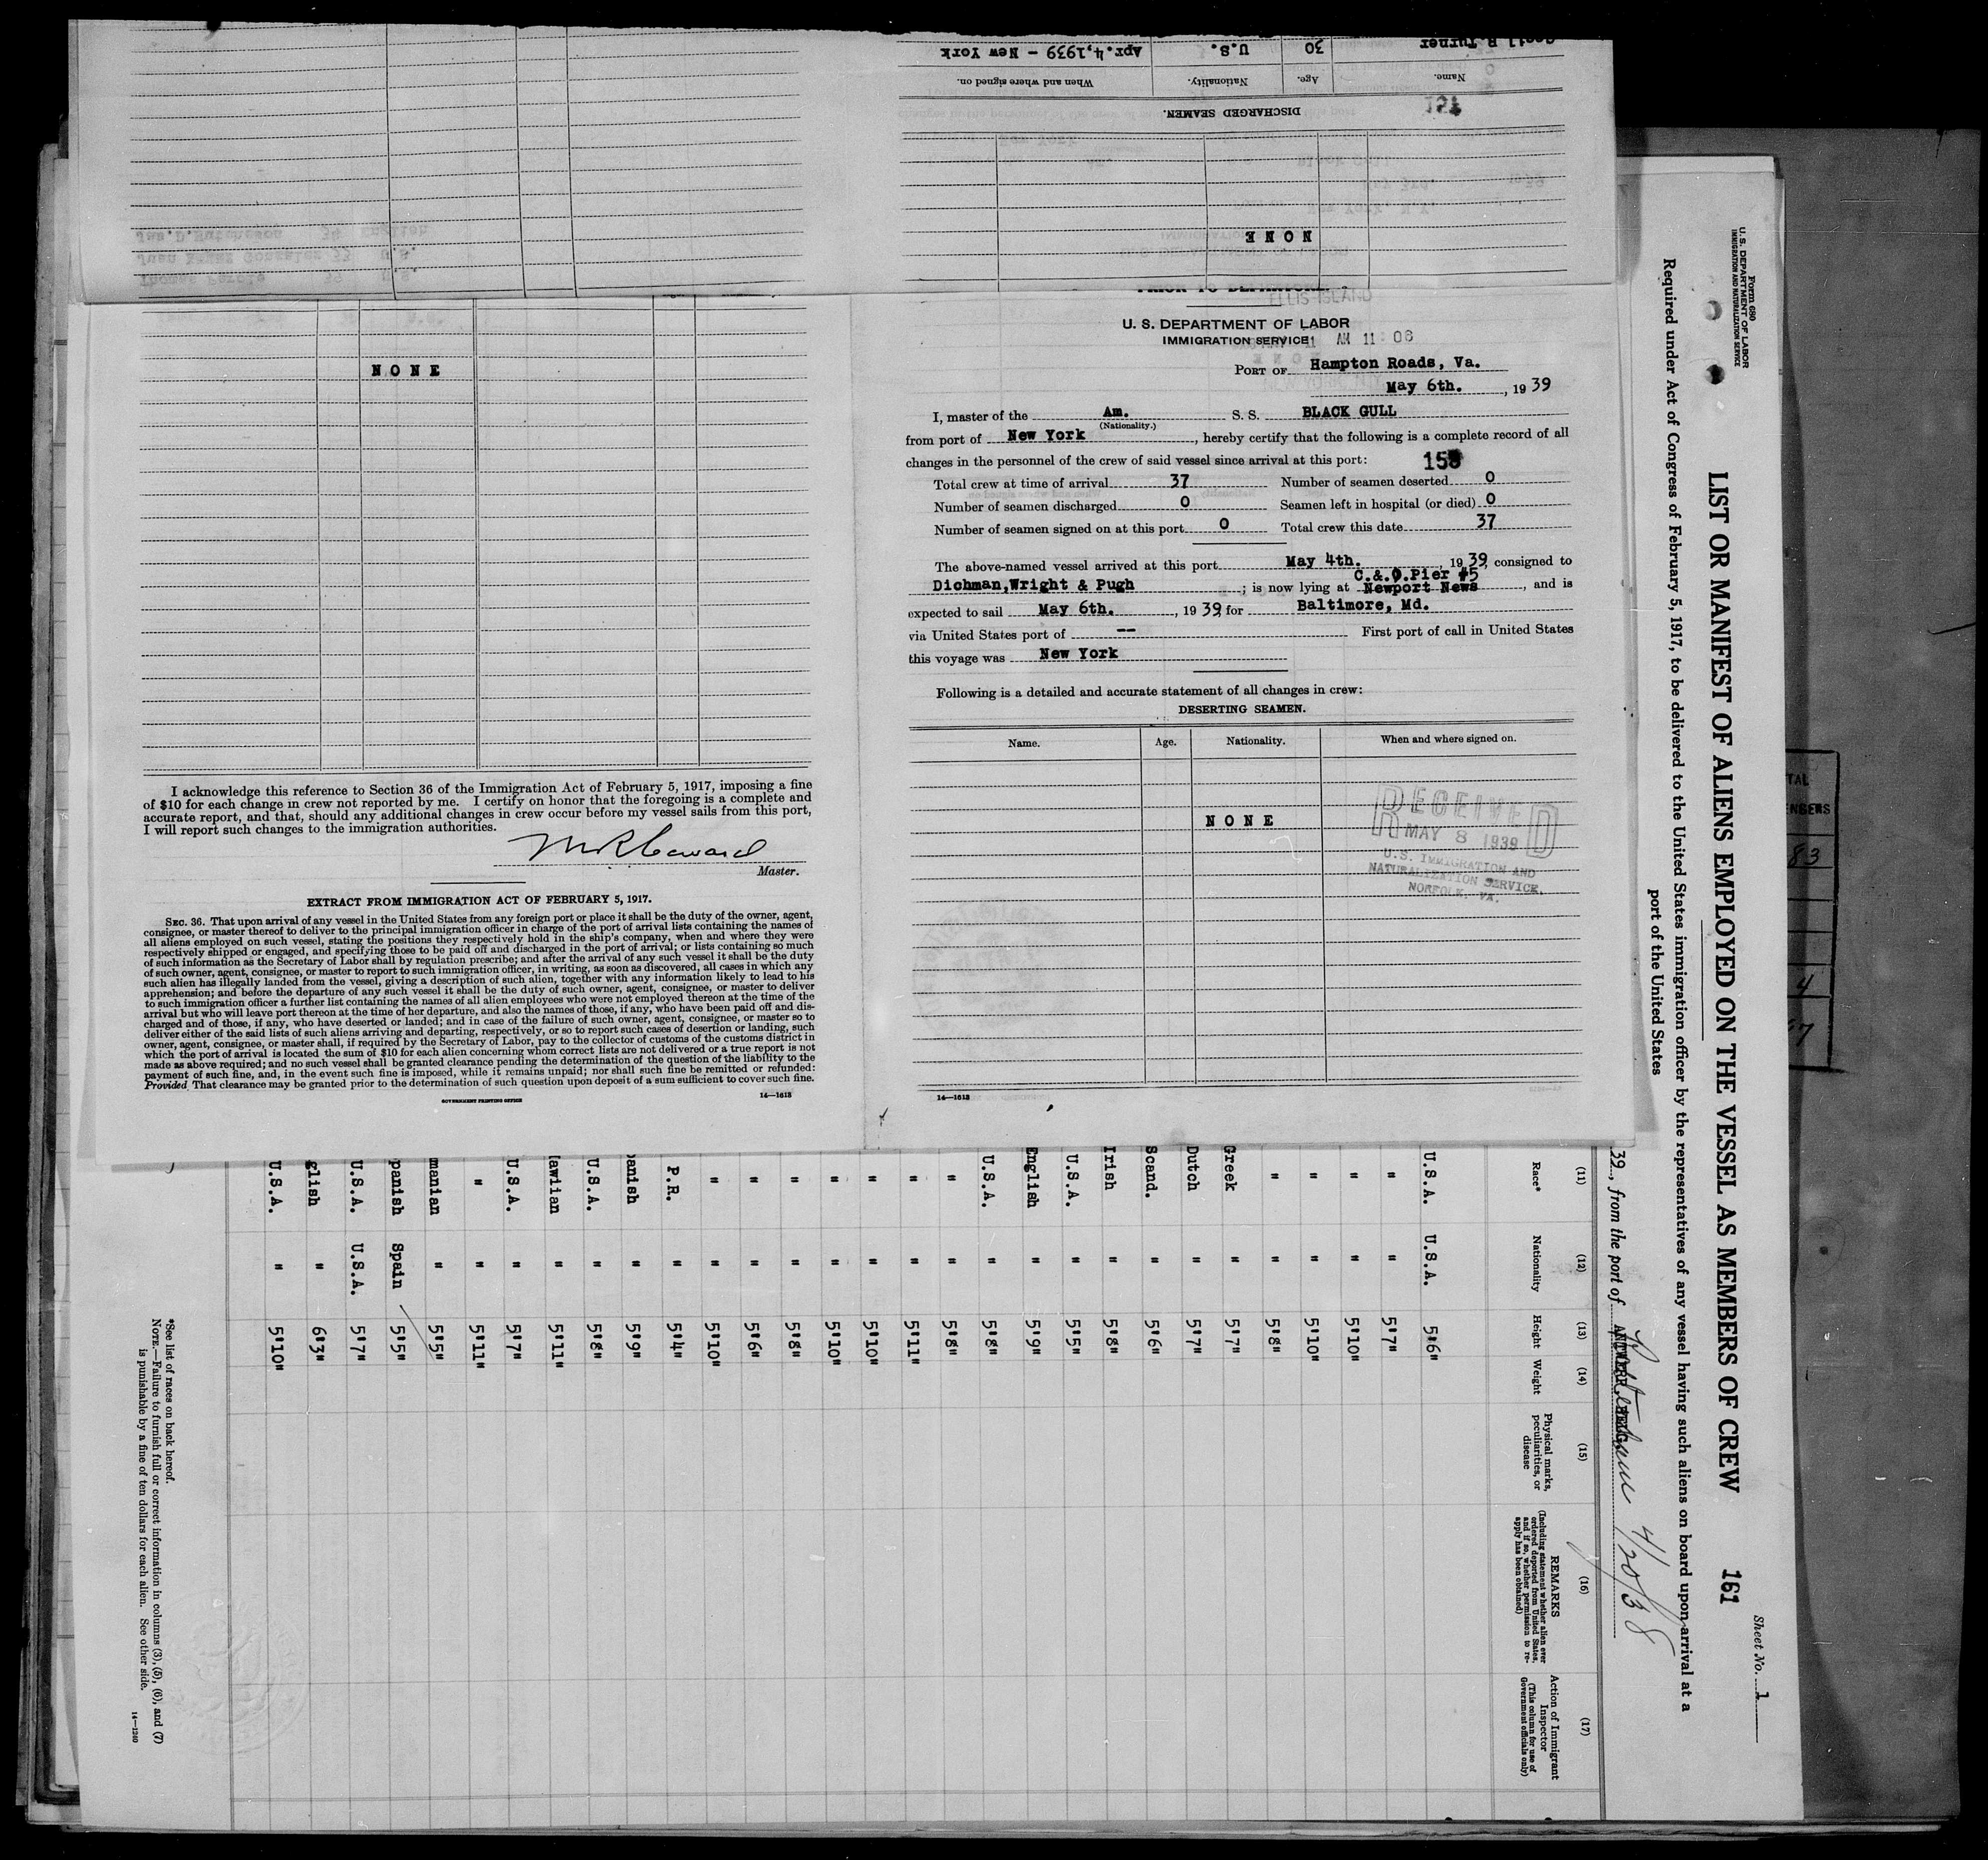 Cecil R Turner 30 U.S. Apr.4,1939 - New York
Name. Age. Nationality. When and where signed on.
DISCHARGED SEAMEN.
NONE
PRIOR TO DEPARTURE.
ELLIS ISLAND
U. S. DEPARTMENT OF LABOR
IMMIGRATION SERVICE
AM 11:06
PORT OF Hampton Roads, Va.
May 6th., 1939
I, master of the Am. S. S. BLACK GULL
(Nationality.)
from port of New York, hereby certify that the following is a complete record of all
changes in the personnel of the crew of said vessel since arrival at this port:
Total crew at time of arrival 37 Number of seamen deserted 0
Number of seamen discharged 0 Seamen left in hospital (or died) 0
Number of seamen signed on at this port 0 Total crew this date 37
The above-named vessel arrived at this port May 4th., 1939, consigned to
C.&O.Pier #5
Dichman,Wright & Pugh; is now lying at Newport News, and is
expected to sail May 6th., 1939, for Baltimore, Md.
via United States port of -- First port of call in United States
this voyage was New York
Following is a detailed and accurate statement of all changes in crew:
DESERTING SEAMEN.
Name. Age. Nationality. When and where signed on.
NONE
RECEIVED
MAY 8 1939
U.S. IMMIGRATION AND
NATURALIZATION SERVICE.
NORFOLK. VA.
14—1613
NONE
I acknowledge this reference to Section 36 of the Immigration Act of February 5, 1917, imposing a fine
of $10 for each change in crew not reported by me. I certify on honor that the foregoing is a complete and
accurate report, and that, should any additional changes in crew occur before my vessel sails from this port,
I will report such changes to the immigration authorities.
Master.
EXTRACT FROM IMMIGRATION ACT OF FEBRUARY 5, 1917.
SEC. 36. That upon arrival of any vessel in the United States from any foreign port or place it shall be the duty of the owner, agent,
consignee, or master thereof to deliver to the principal immigration officer in charge of the port of arrival lists containing the names of
all aliens employed on such vessel, stating the positions they respectively hold in the ship's company, when and where they were
respectively shipped or engaged, and specifying those to be paid off and discharged in the port of arrival; or lists containing so much
of such information as the Secretary of Labor shall by regulation prescribe; and after the arrival of any such vessel it shall be the duty
of such owner, agent, consignee, or master to report to such immigration officer, in writing, as soon as discovered, all cases in which any
such alien has illegally landed from the vessel, giving a description of such alien, together with any information likely to lead to his
apprehension; and before the departure of any such vessel it shall be the duty of such owner, agent, consignee, or master to deliver
to such immigration officer a further list containing the names of all alien employees who were not employed thereon at the time of the
arrival but who will leave port thereon at the time of her departure, and also the names of those, if any, who have been paid off and dis-
charged and of those, if any, who have deserted or landed; and in case of the failure of such owner, agent, consignee, or master so to
deliver either of the said lists of such aliens arriving and departing, respectively, or so to report such cases of desertion or landing, such
owner, agent, consignee, or master shall, if required by the Secretary of Labor, pay to the collector of customs of the customs district in
which the port of arrival is located the sum of $10 for each alien concerning whom correct lists are not delivered or a true report is not
made as above required; and no such vessel shall be granted clearance pending the determination of the question of the liability to the
payment of such fine, and, in the event such fine is imposed, while it remains unpaid; nor shall such fine be remitted or refunded:
Provided, That clearance may be granted prior to the determination of such question upon deposit of a sum sufficient to cover such fine.
GOVERNMENT PRINTING OFFICE 14—1613
Form 680
U. S. DEPARTMENT OF LABOR
IMMIGRATION AND NATURALIZATION SERVICE
Sheet No. 1
LIST OR MANIFEST OF ALIENS EMPLOYED ON THE VESSEL AS MEMBERS OF CREW 161
Required under Act of Congress of February 5, 1917, to be delivered to the United States immigration officer by the representatives of any vessel having such aliens on board upon arrival at a
port of the United States
39, from the port of Rotterdam 4/20/38
(11) (12) (13) (14) (15) (16) (17)
Race* Nationality Height Weight Physical marks, peculiarities, or disease
REMARKS
(Including statement whether alien ever ordered deported from United States, and if so, whether permission to re-apply has been obtained)
Action of Immigrant Inspector
(This column for use of Government officials only)
U.S.A. U.S.A. 5'6"
" " 5'7"
" " 5'10"
" " 5'10"
" " 5'8"
Greek " 5'7"
Dutch " 5'7"
Scand. " 5'6"
Irish " 5'8"
U.S.A. " 5'5"
English " 5'9"
U.S.A. " 5'8"
" " 5'8"
" " 5'11"
" " 5'10"
" " 5'10"
" " 5'8"
" " 5'6"
" " 5'10"
P.R. " 5'4"
panish " 5'9"
U.S.A. " 5'8"
awiian " 5'11"
U.S.A. " 5'7"
" " 5'11"
manian " 5'5"
panish Spain 5'5"
U.S.A. U.S.A. 5'7"
glish " 6'3"
U.S.A. " 5'10"
*See list of races on back hereof.
NOTE.—Failure to furnish full or correct information in columns (3), (5), (6), and (7)
is punishable by a fine of ten dollars for each alien. See other side.
14—1240
83
4